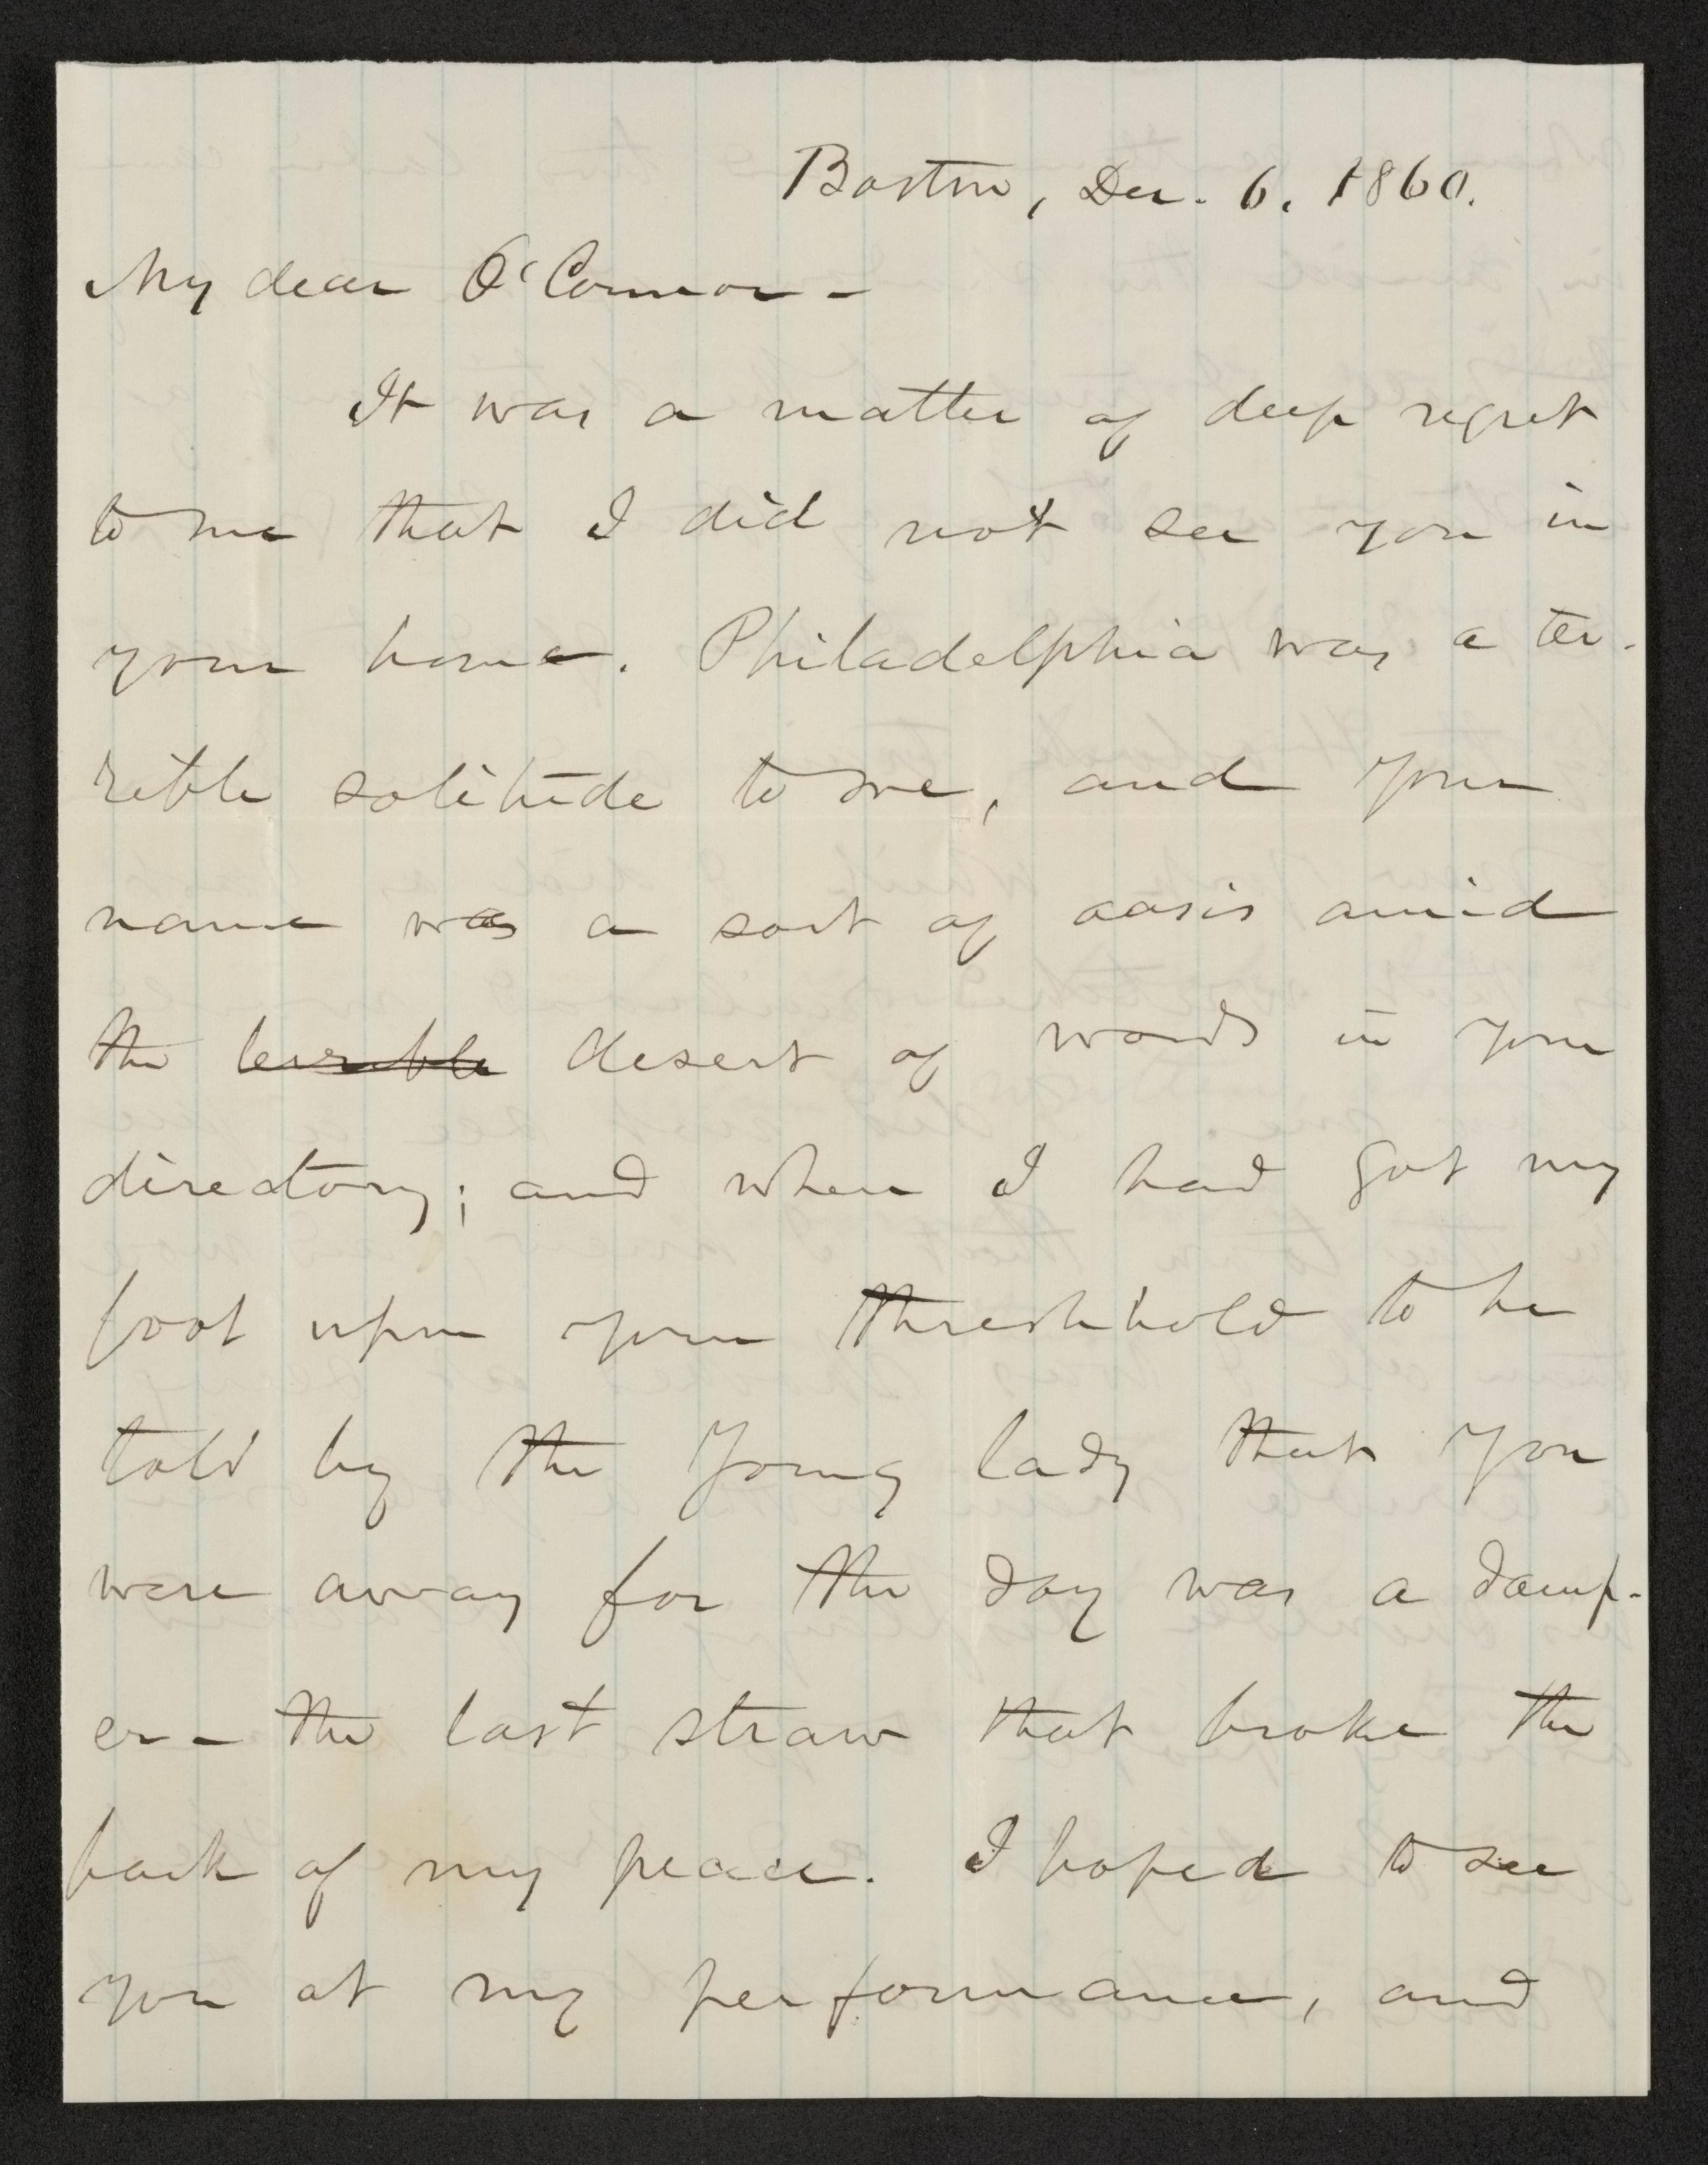 Boston, Dec. 6. 1860.
My dear O'Connor —
It was a matter of deep regret
to me that I did not see you in
your home. Philadelphia was a ter-
rible solitude to me, and your
name was a sort of oasis amid
the terrible desert of words in your
directory; and when I had got my
foot upon your threshhold to be
told by the young lady that you
were away for the day was a damp-
er — the last straw that broke the
back of my peace. I hoped to see
you at my performance, and